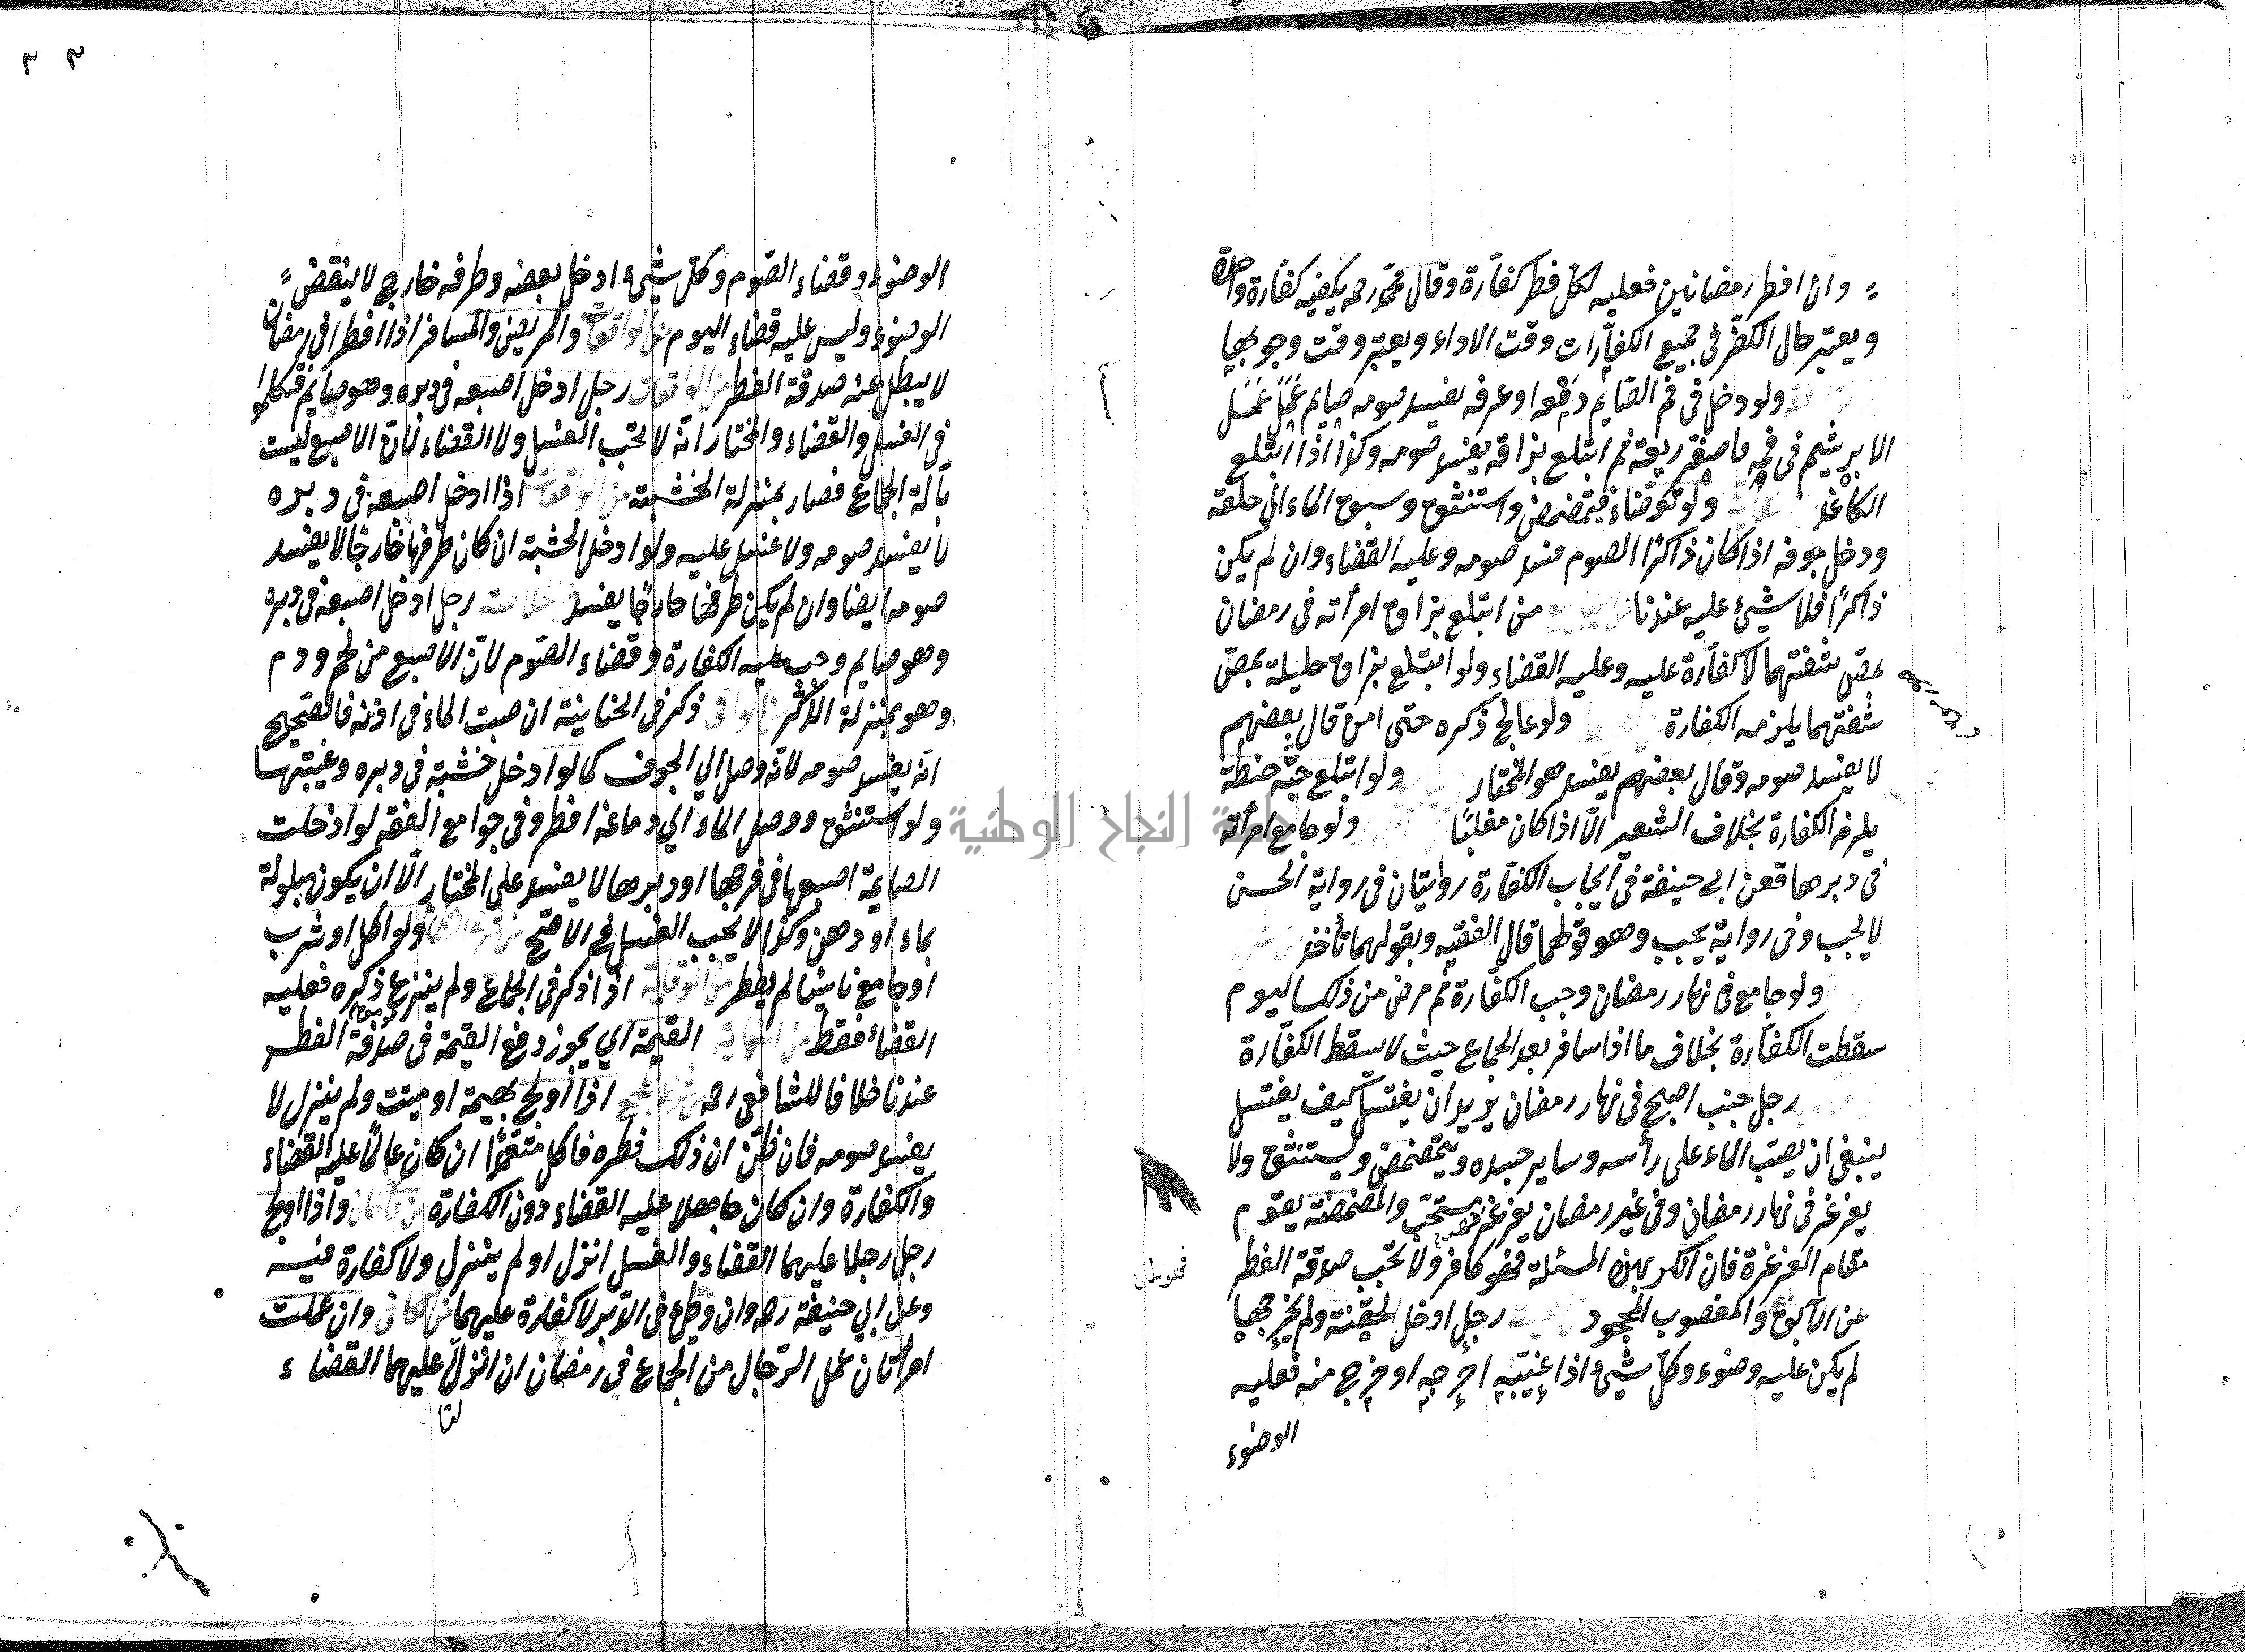 وان افطر رمضانين فعليه لكل فطر كفارة وقال محمد رحمه يكفيه كفارة واحدة
ويعتبر حال الكفر في جميع الكفارات وقت الاداء ويعتبر وقت وجوبها
ولو دخل في فم الصايم دمعه او عرقه يفسد صومه صايم عمل عمل
الابريشم في فمه فاصفر ريقه ثم ابتلع بزاقه يفسد صومه وكذا اذا ابتلع
الكاغذ ولو توضاء فتمضمض واستنشق وسبق الماء الى حلقه
ودخل جوفه اذا كان ذاكرا الصوم فسد صومه وعليه القضاء وان لم يكن
ذاكرًا فلا شيئ عليه عندنا من ابتلع بزاق امرأته في رمضان
بمص شفتهما لا كفارة عليه وعليه القضاء ولو ابتلع بزاق حليلة بمص
شفتهما يلزمه الكفارة ولو عالج ذكره حتى امن قال بعضهم
لا يفسد صومه وقال بعضهم يفسد هو المختار ولو ابتلع حبّة حنطة
يلزمه الكفارة بخلاف الشعير الّا اذا كان مقليًا ولو جامع امرأته
في دبرها فعن ابي حنيفة في ايجاب الكفّارة روايتان في رواية الحسن
لا يجب وفي رواية يجب وهو قولهما قال الفقيه وبقولهما نأخذ
ولو جامع في نهار رمضان وجب الكفّارة ثم مرض من ذلك اليوم
سقطت الكفّارة بخلاف ما اذا سافر بعد الجماع حيث لا يسقط الكفّارة
رجل جنب اصبح في نهار رمضان يريد ان يغتسل كيف يغتسل
ينبغي ان يصب الماء على رأسه وساير جسده ويتمضمض ويستنشق ولا
يغرغر في نهار رمضان وفي غير رمضان يغرغر فهو مستحب والمضمضة يقوم
مقام الغرغرة فان انكر بهذه المسئلة فهو كافر ولا تجب صدقة الفطر
عن الآبق والمغصوب المجحود رجل ادخل الحقنة ولم يخرجها
لم يكن عليه وضوء وكلّ شيئ اذا غيّبه اخرجه او خرج منه فعليه
الوضوء
٣ ٣
الوضوء وقضاء الصوم وكل شيئ ادخل بعضه وطرفه خارج لا ينقض
الوضوء وليس عليه قضاء اليوم من الواقعات والمريض والمسافر اذا افطر في رمضان
لا يبطل عنه صدقة الفطر من الواقعات رجل ادخل اصبعه في دبره وهو صايم فتكلموا
في الغسل والقضاء والمختار انّه لا تجب الغسل ولا القضاء لانّ الاصبع ليست
بآلة الجماع فصار بمنزلة الخشبة من الواقعات اذا ادخل اصبعه في دبره
لا يفسد صومه ولا غسل عليه ولو ادخل الخشبة ان كان طرفها خارجًا لا يفسد
صومه ايضا وان لم يكن طرفها خارجًا يفسد خلاصة رجل ادخل اصبعه في دبره
وهو صايم وجب عليه الكفارة وقضاء الصوم لانّ الاصبع من لحم ودم
وهو بمنزلة الذكر ذكر في الخانية ان صبت الماء في اذنه فالصحيح
انه يفسد صومه لانّه وصل الي الجوف كما لو ادخل خشبة في دبره وغيّبتها
ولو استنشق ووصل الماء الي دماغه افطر وفي جوامع الفقه لو ادخلت
الصايمة اصبعها في فرجها او دبرها لا يفسد على المختار الّا ان يكون مبلولة
بماء او دهن وكذا لا يجب الغسل في الاصح ولو اكل او شرب
او جامع ناسيا لم يفطر من الوقاية اذا ذكر في الجماع ولم ينزع ذكره فعليه
القضاء فقط من النهاية القيمة اي يجوز دفع القيمة في صدقة الفطر
عندنا خلافا للشافعي رحمه اذا اولج بهيمة او ميتت ولم ينزل لا
يفسد صومه فان ظنّ ان ذلك فطره فاكل متعمّدًا ان كان عالمًا عليه القضاء
والكفارة وان كان جاهلا عليه القضاء دون الكفارة واذا اولج
رجل رجلا عليهما القضاء والغسل انزل او لم ينزل ولا كفارة فيه
وعن ابي حنيفة رحمه وان وطئ في الدّبر لا كفارة عليهما من الكافي وان عملت
امرأتان عمل الرّجال من الجماع في رمضان ان انزلا عليهما القضاء
جامعة النجاح الوطنية